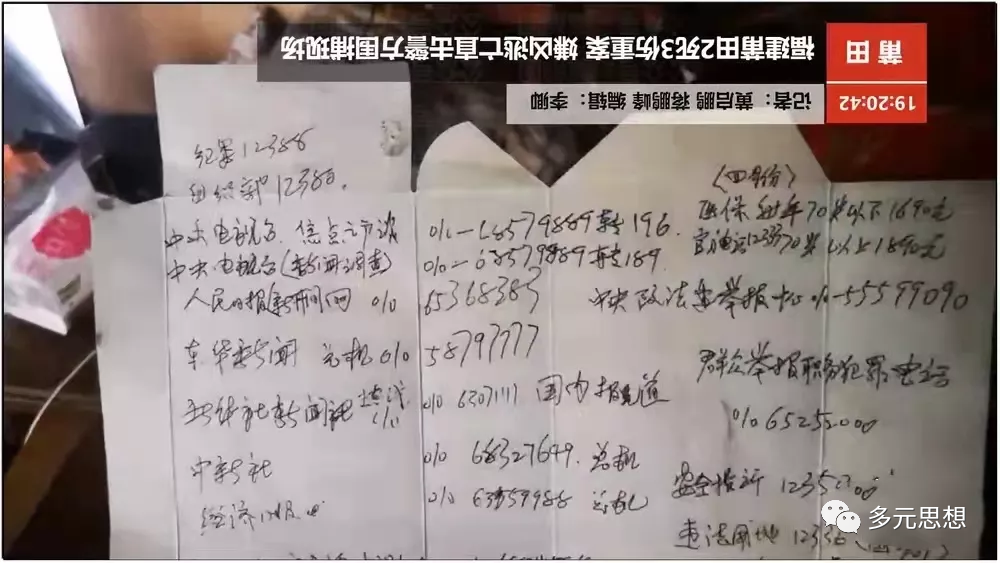 福建莆田2死3伤重案 嫌凶逃亡直击警方围捕现场
莆田
记者：黄启鹏 蒋鹏峰 编辑：李卿
19:20:42
纪委12388
组织部12380.
中央电视台. 焦点访谈 010-68579889转196.
中央电视台(新闻调查) 010-68579889转189.
人民日报新闻网 010 65368383
新闻 总机010 58797777
新闻社 010 63071111 国内报道
中新社 010 68327649. 总机
经济日报 010 总机
(四月份)
医保 每年70岁以下1690元
70岁以上1890元
中央政法委举报中心010-55599090
群众举报职务犯罪电话
010 65252000
安全 12350
违法用地 12336
多元思想